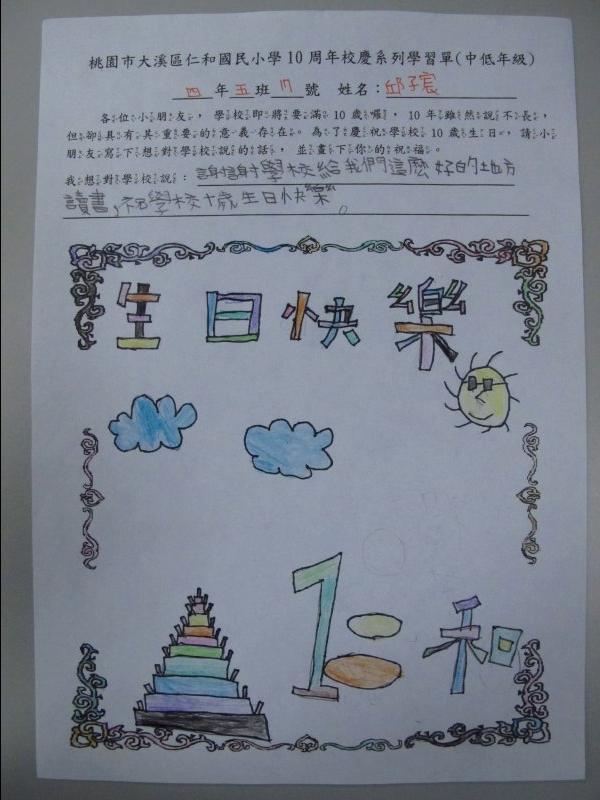 桃園市大溪區仁和國民小學10周年校慶系列學習單(中低年級)
四年五班17號 姓名：邱子宸
各位小朋友，學校即將要滿10歲囉，10年雖然說不長，
但卻具有其重要的意義存在。為了慶祝學校10歲生日，請小
朋友寫下想對學校說的話，並畫下你的祝福。
我想對學校說：謝謝學校給我們這麼好的地方
讀書，祝學校十歲生日快樂。
生日快樂
仁和